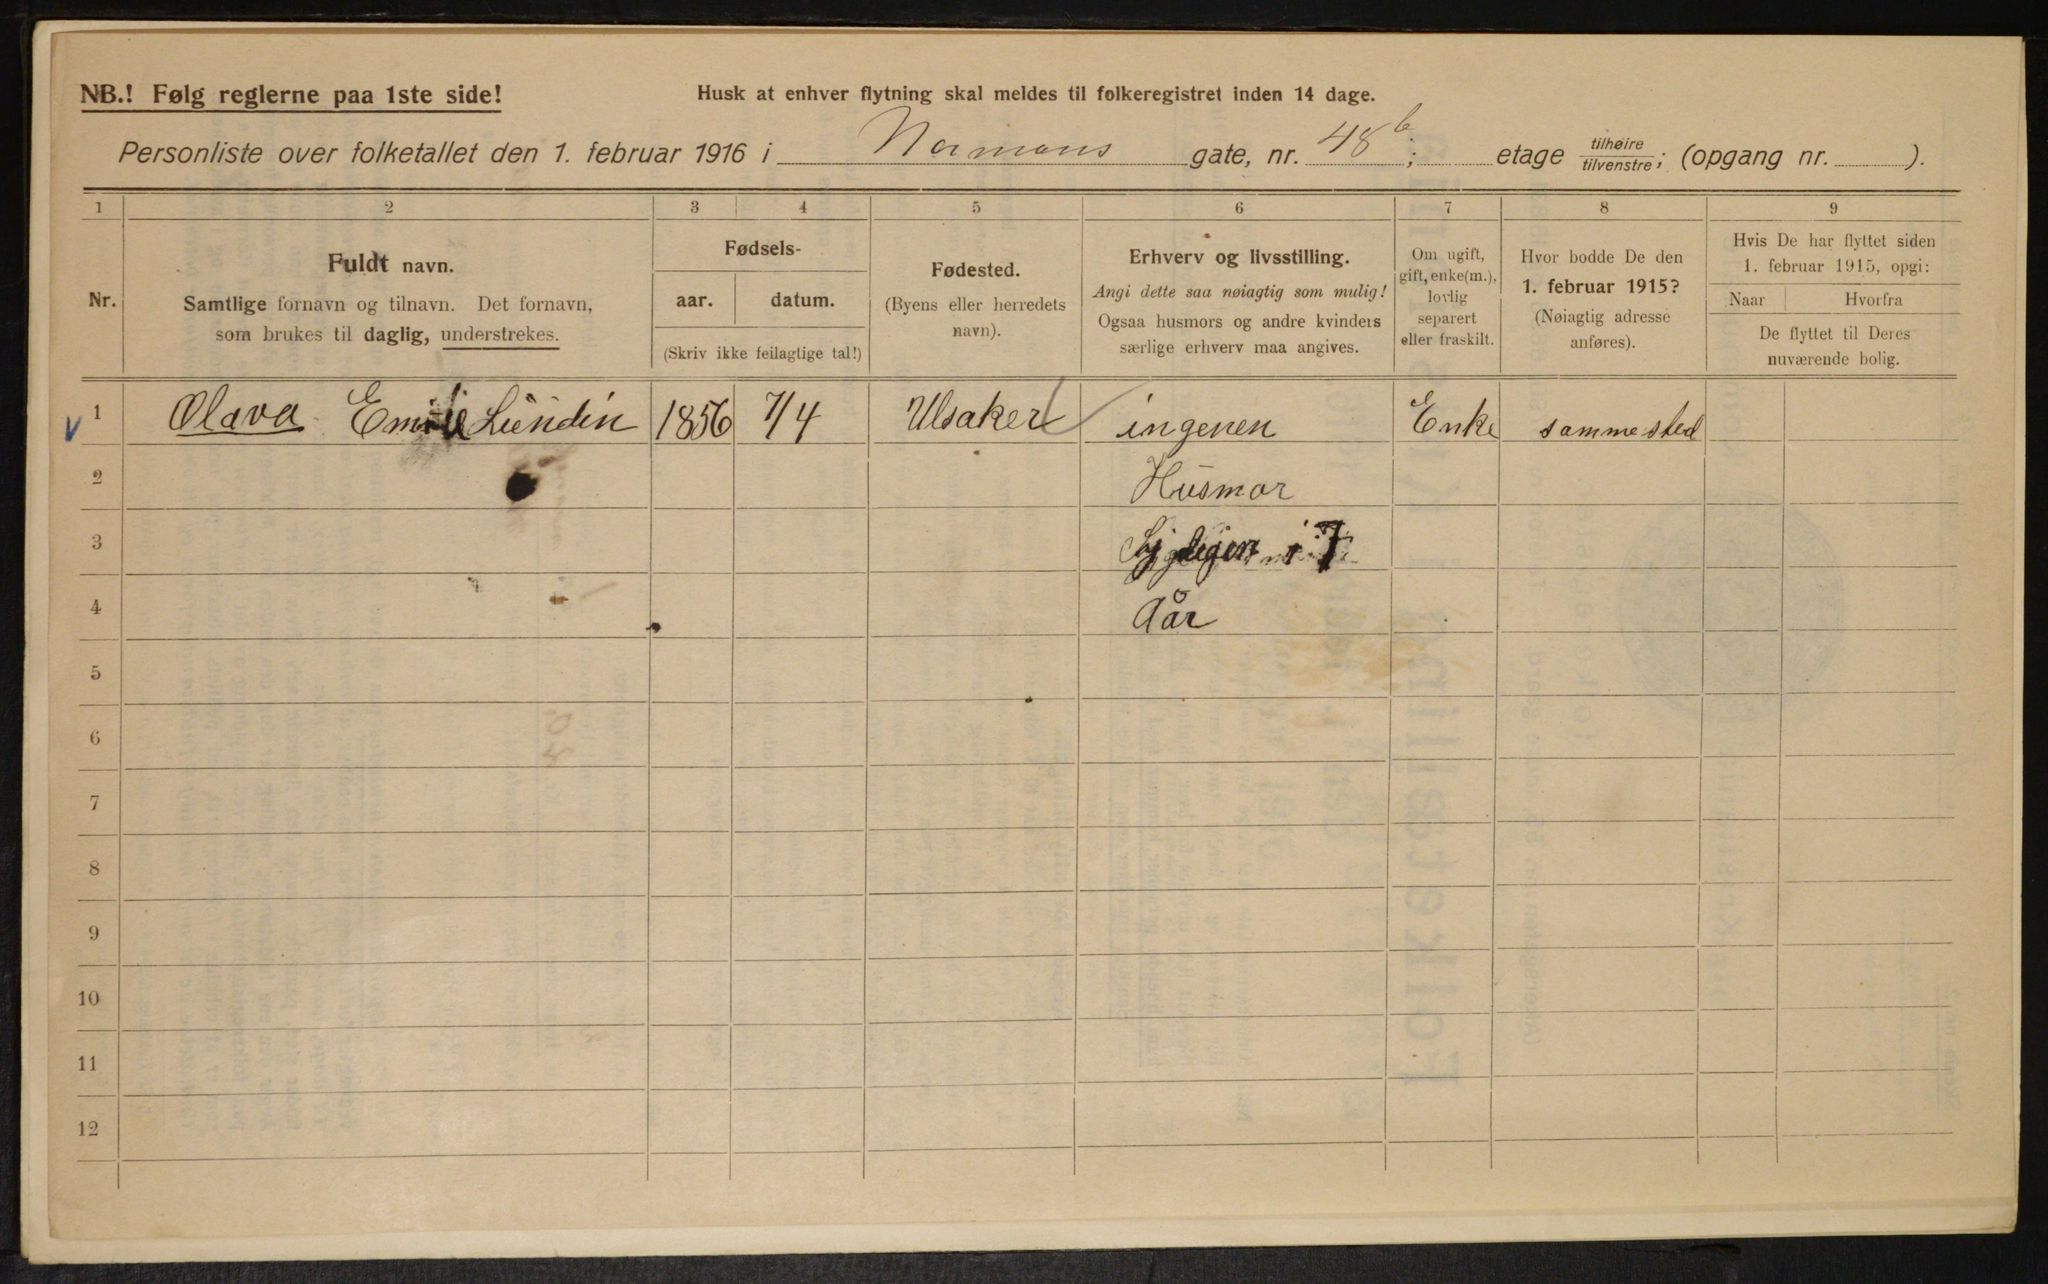 NB.! Følg reglerne paa 1ste side!
Husk at enhver flytning skal meldes til folkeregistret inden 14 dage.
Personliste over folketallet den 1. februar 1916 i Normans gate, nr. 48 b; etage tilhøire/tilvenstre; (opgang nr. ).
1 2 3 4 5 6 7 8 9
Nr.
Fuldt navn.
Samtlige fornavn og tilnavn. Det fornavn,
som brukes til daglig, understrekes.
Fødsels-
aar. datum.
(Skriv ikke feilagtige tal!)
Fødested.
(Byens eller herredets
navn).
Erhverv og livsstilling.
Angi dette saa nøiagtig som mulig!
Ogsaa husmors og andre kvinders
særlige erhverv maa angives.
Om ugift,
gift, enke(m.),
lovlig
separert
eller fraskilt.
Hvor bodde De den
1. februar 1915?
(Nøiagtig adresse
anføres).
Hvis De har flyttet siden
1. februar 1915, opgi:
Naar Hvorfra
De flyttet til Deres
nuværende bolig.
1 Olava Emilie Lundin 1856 7/4 Ulsaker ingenen Enke sammested
2 Husmor
3 i 7
4 Aår
5
6
7
8
9
10
11
12